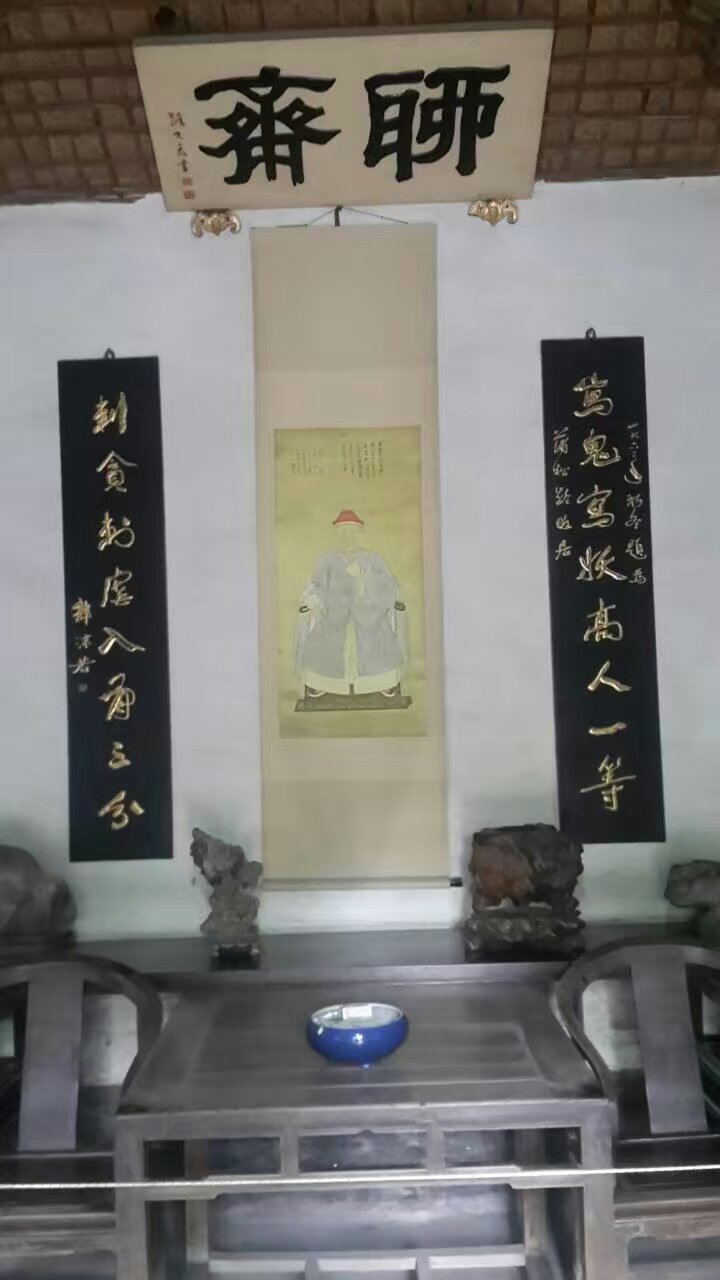 聊齋
路大荒書
一九六二年初冬題為
寫鬼寫妖高人一等
蒲松齡故居
刺貪刺虐入骨三分
郭沫若